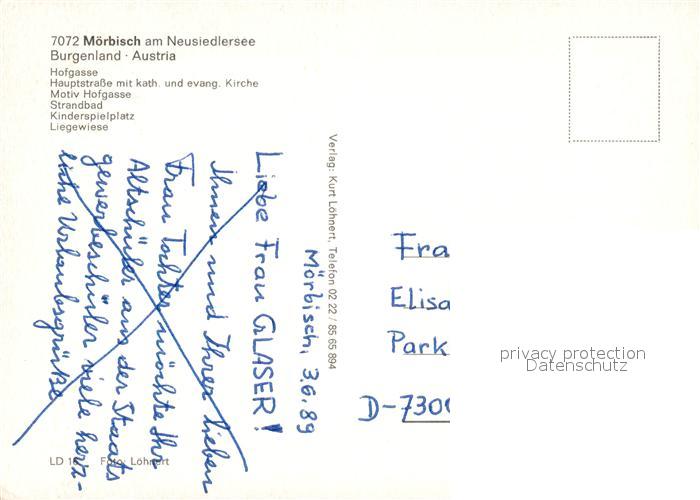 7072 Mörbisch am Neusiedlersee
Burgenland · Austria
Hofgasse
Hauptstraße mit kath. und evang. Kirche
Motiv Hofgasse
Strandbad
Kinderspielplatz
Liegewiese
Verlag: Kurt Löhnert, Telefon 02 22 / 85 65 894
Mörbisch, 3.6.89
Liebe Frau GLASER!
Ihnen und Ihrer lieben
Frau Tochter möchte Ihr
Altschüler aus der Staats
gewerbeschüler viele herz-
liche Urlaubsgrüße
LD Foto: Löhnert
Fra
Elisa
Park
D-730
privacy protection
Datenschutz